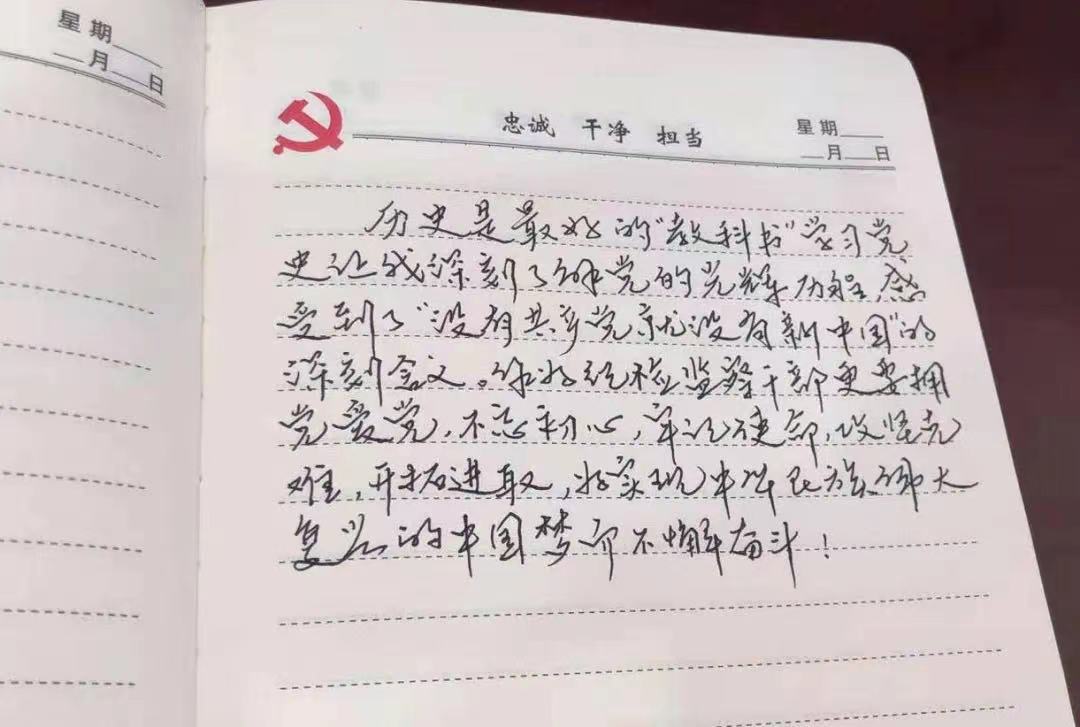 星期
月 日
忠诚 干净 担当
星期
月 日
历史是最好的“教科书”学习党
史让我深刻了解党的光辉历程,感
受到了“没有共产党就没有新中国”的
深刻含义。作为纪检监察干部更要拥
党爱党,不忘初心,牢记使命,攻坚克
难,开拓进取,为实现中华民族伟大
复兴的中国梦而不懈奋斗!